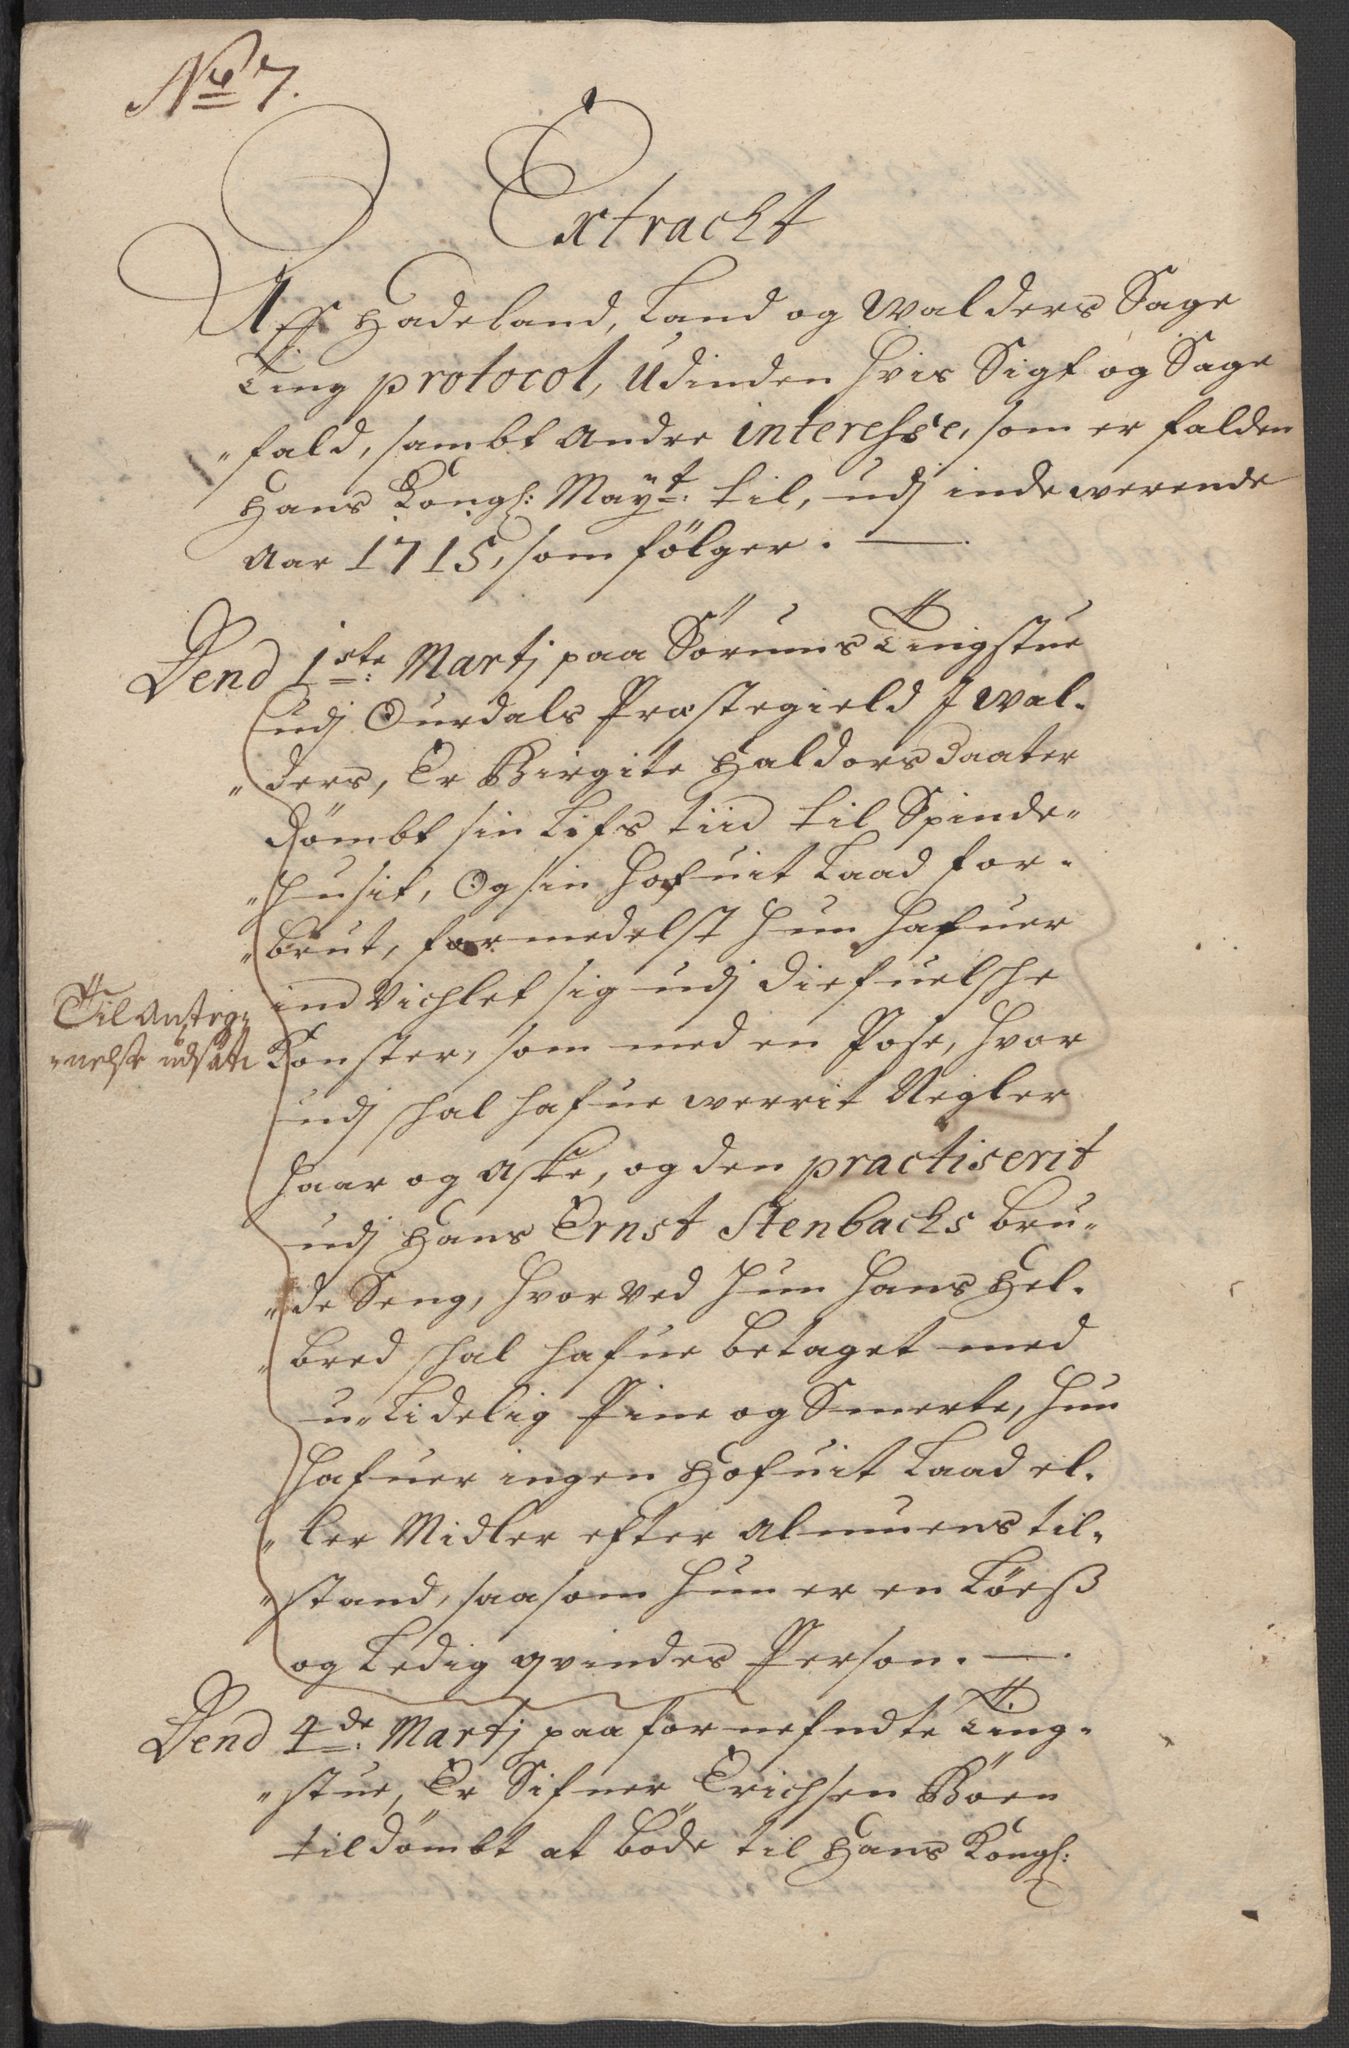 No 7.
Extracht
Aff Hadeland, Land og Walders Sage
Ting protocol, Udinden hvis Sigt og Sage
"fald, sambt Andre interesse, som er falden
Hans Kongl: Mayt: til, udj indewerende
Aar 1715, som følger. —
Dend 1ste: Martj paa Sørums Tingstue
udj Ourdals Præstegield J Wal-
"ders, Er Birgite Haldorsdaater
Dømbt sin Lifs tiid til Spinde-
"husit, Og sin Hofuit Laad for-
"brut, formedelst hun hafuer
indvichlet sig udj diefuelsche
Konster, som med en Pose, hvor
udj schal hafue werrit Negler
haar og Aske, og den practiserit
udj Hans Ernst Stenbachs bru-
"de Seng, hvorved hun hans Hel-
"bred schal hafue betaget med
u-Lidelig Pine og Smerte, hun
hafuer ingen Hofuit Laad el-
"ler Midler efter Almuens til-
"stand, saasom hun er en Løeß
og Ledig qvindes Person. —
Til Anteg-
"nelse udsat
Dend 4de: Martj paa fornefndte Ting-
"stue, Er Sifuer Erichsen Bøen
tildømbt at bøde til Hans Kongl: